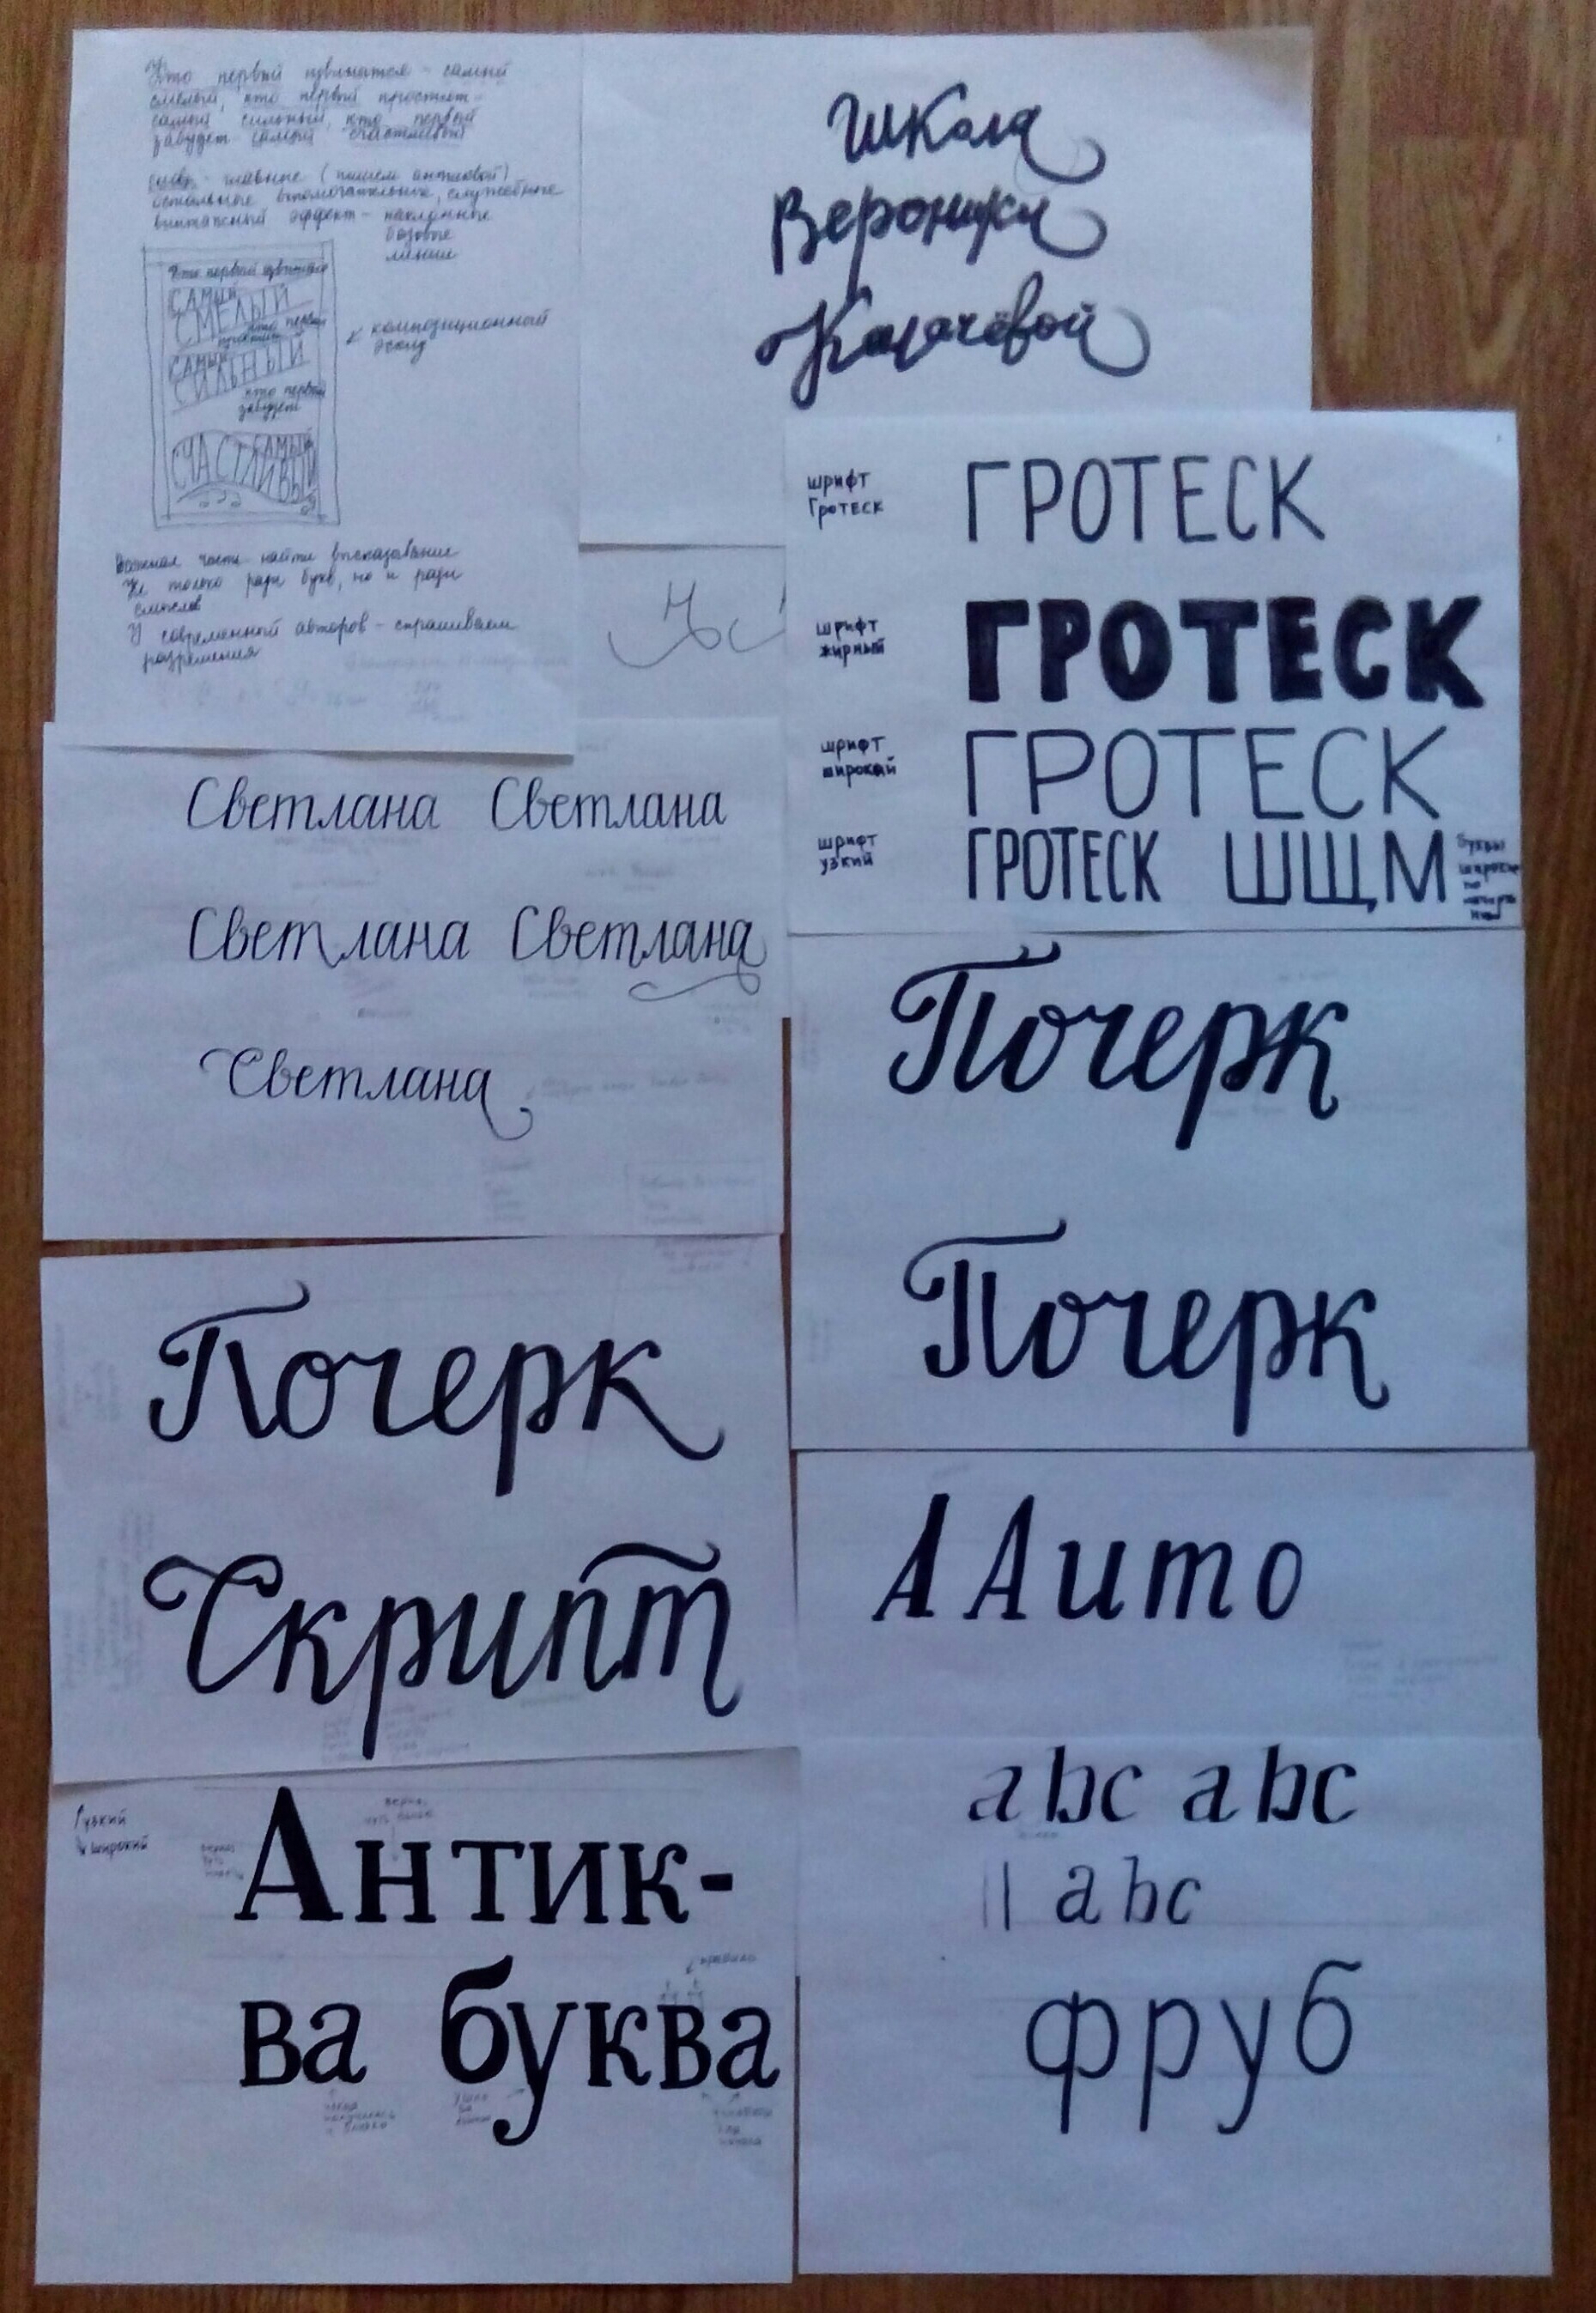 Кто первый извинится - самый
смелый, кто первый простит -
самый сильный, кто первый
забудет самый счастливый
главные (пишем антиквой)
остальные вспомогательные, служебные
винтажный эффект - наклонные
базовые
линии
Кто первый извинится
САМЫЙ
СМЕЛЫЙ
кто первый
САМЫЙ
СИЛЬНЫЙ
кто первый
забудет
САМЫЙ
СЧАСТЛИВЫЙ
композиционный
эскиз
Важная часть найти высказывание
Не только ради букв, но и ради
смыслов
У современный авторов - спрашиваем
разрешения
Школа
Вероники
Калачёвой
шрифт
Гротеск
ГРОТЕСК
шрифт
жирный
ГРОТЕСК
шрифт
широкий
ГРОТЕСК
шрифт
узкий
ГРОТЕСК ШЩМ
буквы
широкие
по
Светлана Светлана
Светлана Светлана
Светлана
Почерк
Почерк
Почерк
Скрипт
А А и т о
узкий
широкий
Антик-
ва буква
a b c a b c
a b c
ф р у б